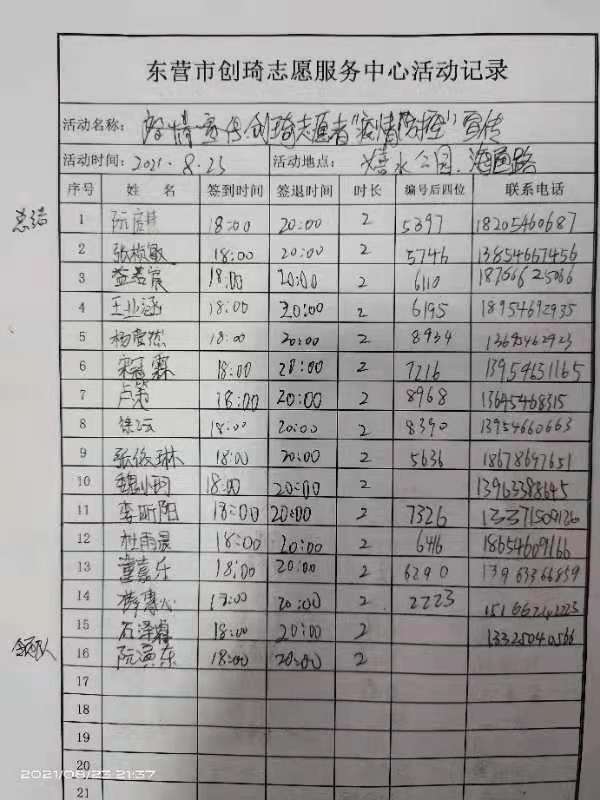 东营市创琦志愿服务中心活动记录
活动名称: 创琦志愿者"疫情防控"宣传
活动时间: 2021.8.23 活动地点: 公园、海通路
序号 姓 名 签到时间 签退时间 时长 编号后四位 联系电话
总结 1 18:00 20:00 2 5397 18205460687
2 张桢敏 18:00 20:00 2 5746 13854667456
3 18:00 20:00 2 6110
4 王业涵 18:00 20:00 2 6195 18954692935
5 杨 18:00 20:00 2 8934
6 宋 霖 18:00 20:00 2 7216 13954631165
7 卢 18:00 20:00 2 8968 13645468315
8 徐 18:00 20:00 2 8390 13954660663
9 张俊琳 18:00 20:00 2 5636 18678697651
10 魏小明 18:00 20:00 2 13963388645
11 李昕阳 18:00 20:00 2 7326 13371509126
12 杜雨晨 18:00 20:00 2 6416 18654609166
13 董嘉乐 18:00 20:00 2 6290 13963366859
14 20:00 2 2223 15166242223
15 石泽睿 18:00 20:00 2 13325040566
领队 16 阮 东 18:00 20:00 2
17
18
19
20
21
2021/08/23 21:37